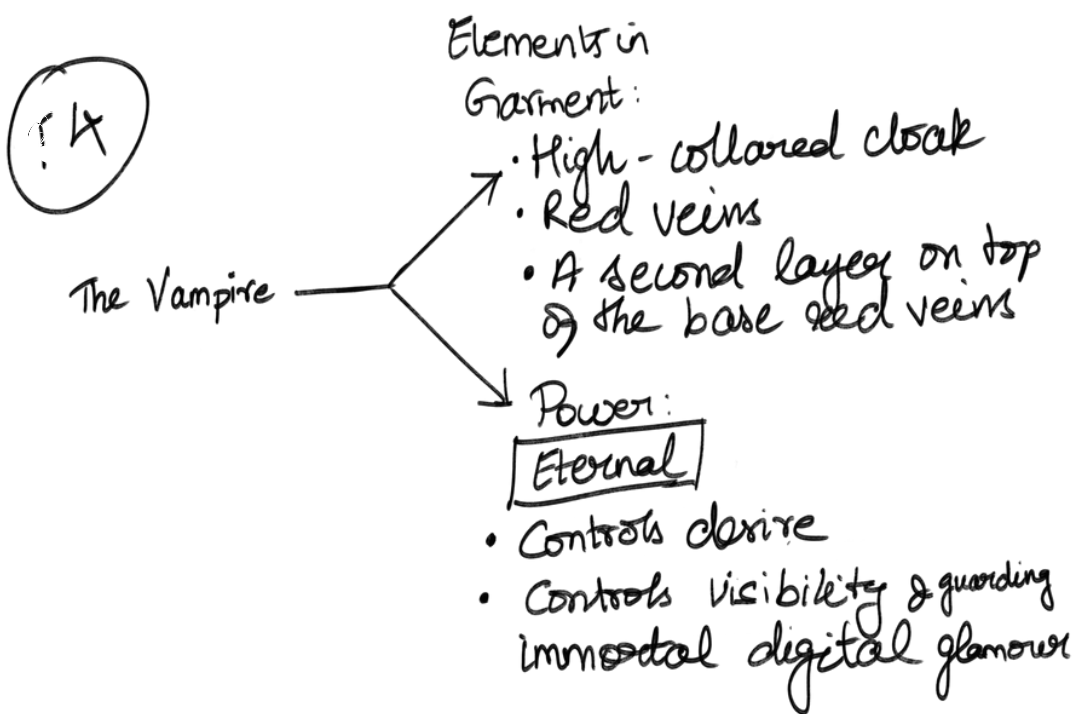 4
Elements in
Garment:
• High-collared cloak
• Red veins
• A second layer on top
of the base red veins
The Vampire
Power:
Eternal
• Controls desire
• Controls visibility & guarding
immortal digital glamour